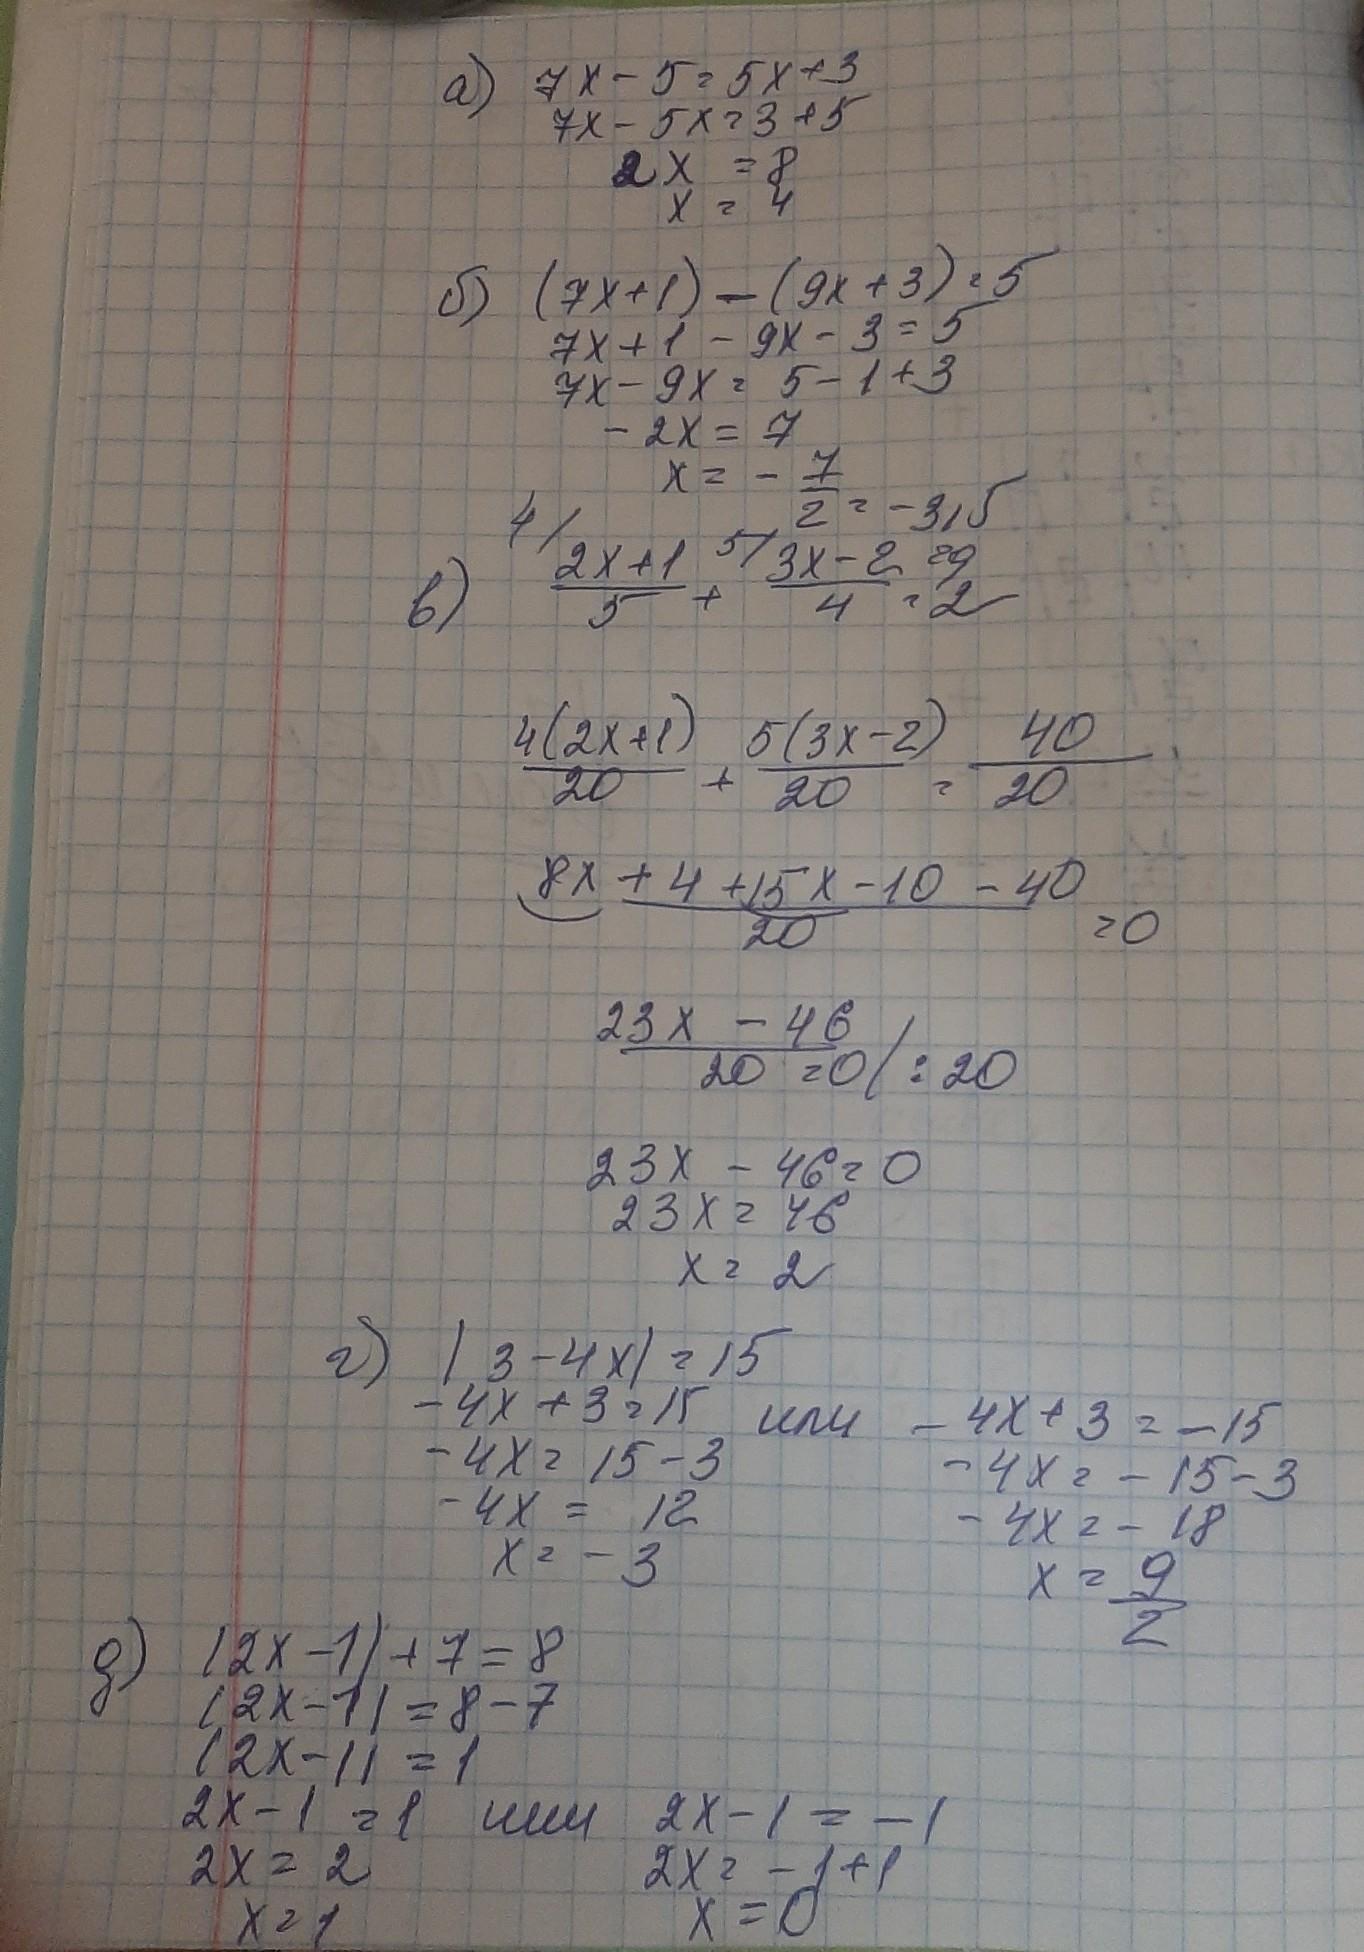 а) 7x - 5 = 5x + 3
7x - 5x = 3 + 5
2x = 8
x = 4
б) (7x + 1) - (9x + 3) = 5
7x + 1 - 9x - 3 = 5
7x - 9x = 5 - 1 + 3
-2x = 7
x = - 7/2 = -3,5
в) 4/ (2x+1)/5 + 5/ (3x-2)/4 = 2
4(2x+1)/20 + 5(3x-2)/20 = 40/20
(8x + 4 + 15x - 10 - 40)/20 = 0
(23x - 46)/20 = 0 / : 20
23x - 46 = 0
23x = 46
x = 2
г) |3 - 4x| = 15
-4x + 3 = 15 или -4x + 3 = -15
-4x = 15 - 3 -4x = -15 - 3
-4x = 12 -4x = -18
x = -3 x = 9/2
д) |2x - 1| + 7 = 8
|2x - 1| = 8 - 7
|2x - 1| = 1
2x - 1 = 1 или 2x - 1 = -1
2x = 2 2x = -1 + 1
x = 1 x = 0